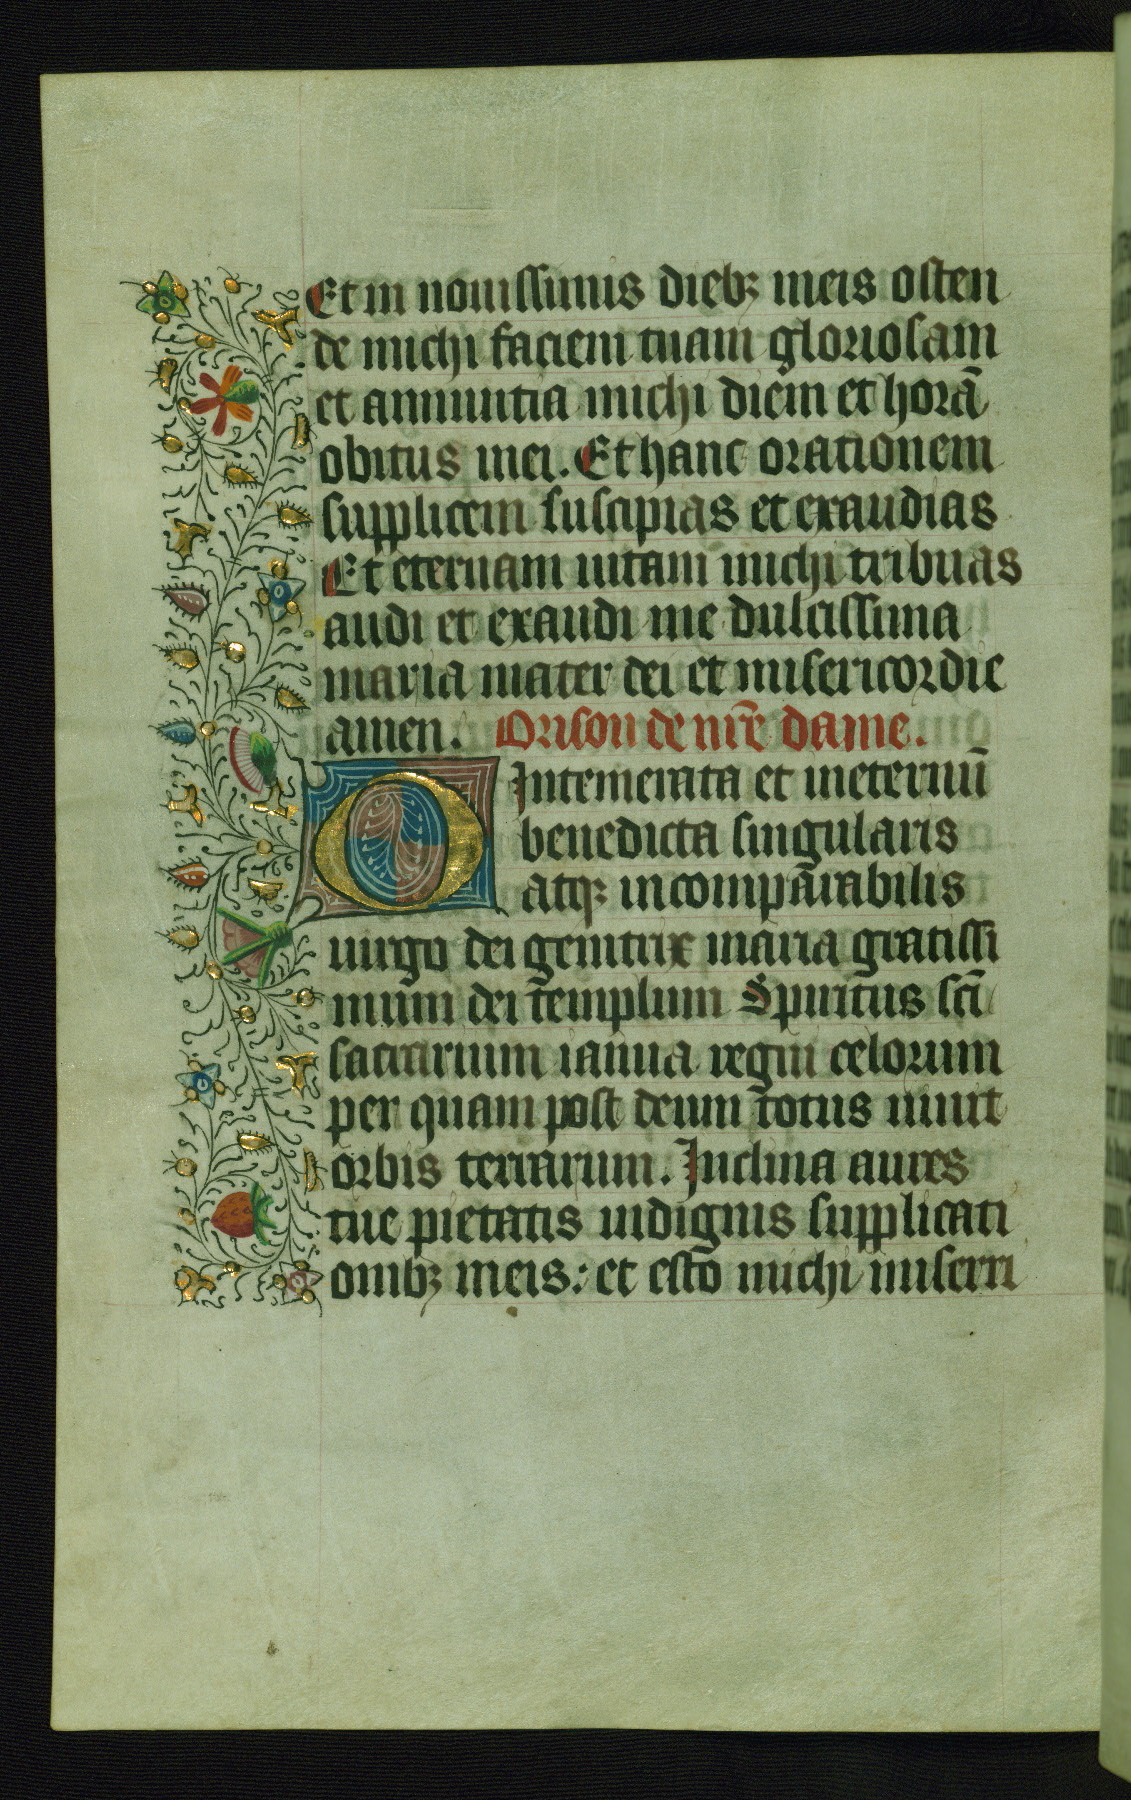 Et in nouissimis dieb⁊ meis osten
de michi faciem tuam gloriosam
et annuntia michi diem et horā
obitus mei. Et hanc orationem
supplicem suscipias et exaudias
Et eternam uitam michi tribuas
audi et exaudi me dulcissima
maria mater dei et misericordie
amen. Orison de nr̄e dame.
O Intemerata et ineternū
benedicta singularis
atq⁊ incomparabilis
uirgo dei genitrix maria gratissi
mum dei templum Spiritus sc̄i
sacrarium ianua regni celorum
per quam post deum totus uiuit
orbis terrarum. Inclina aures
tue pietatis indignis supplicati
onib⁊ meis: et esto michi miserri